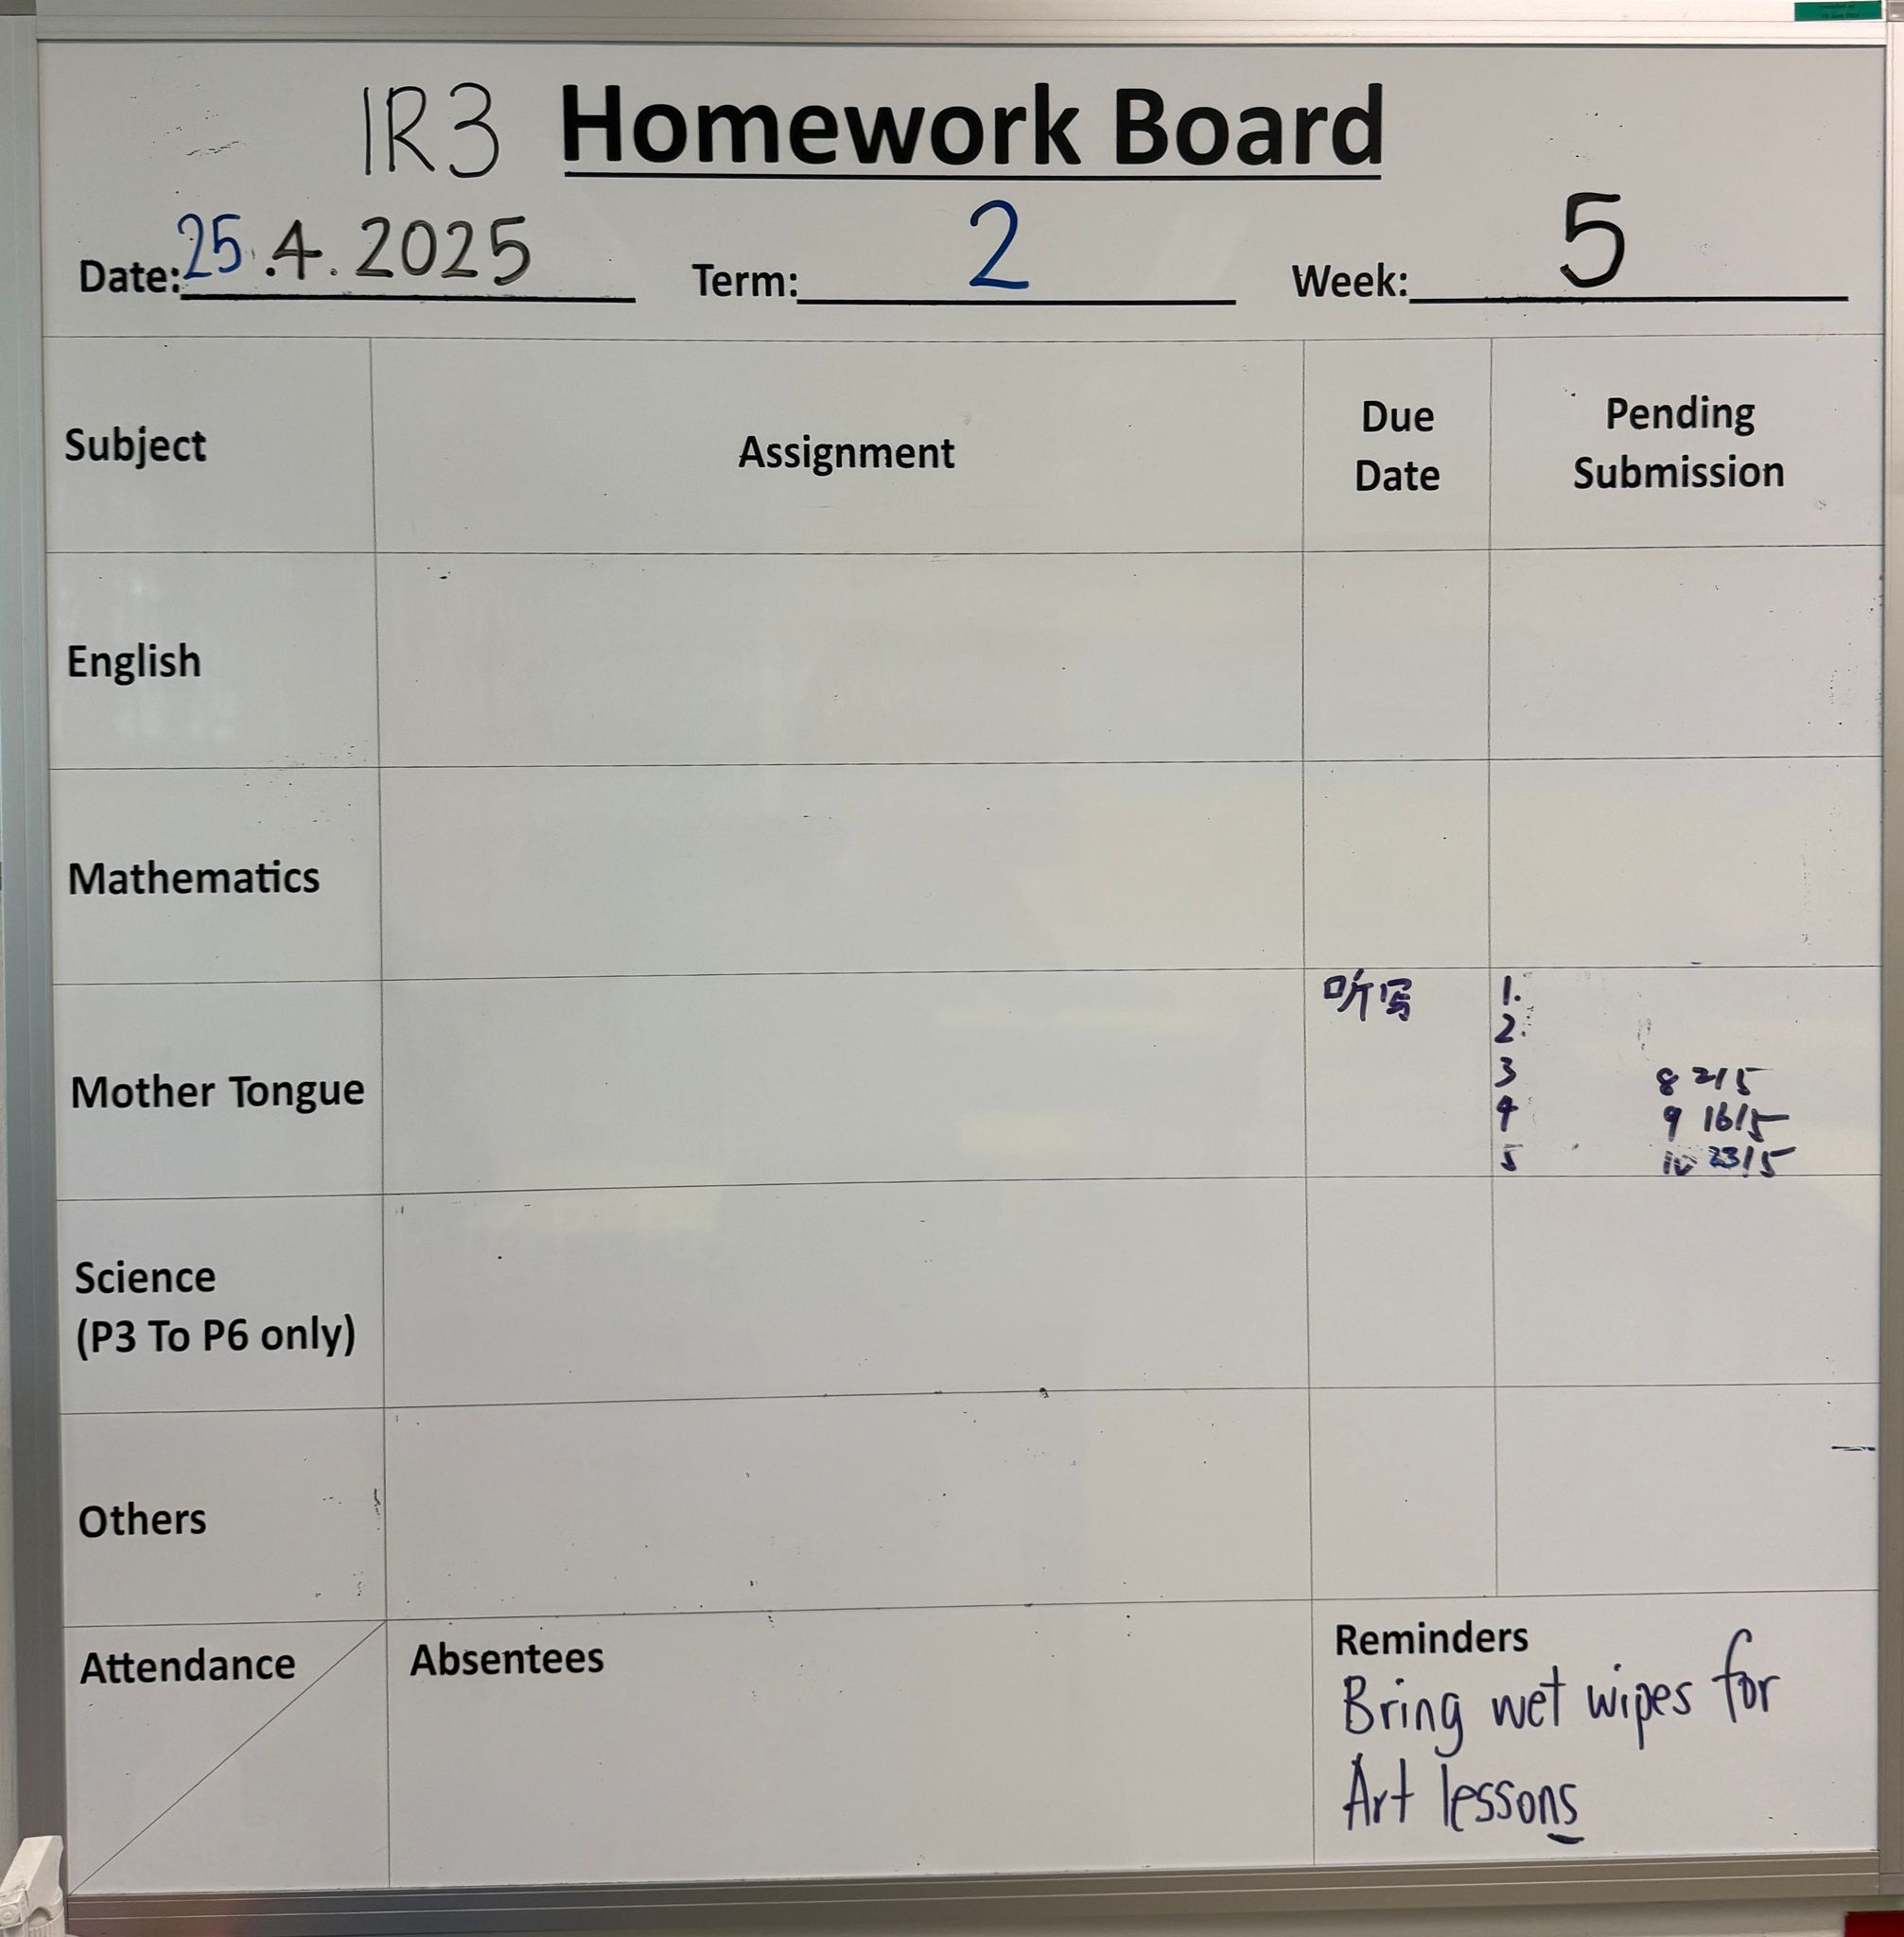 1R3 Homework Board
Date: 25.4.2025 Term: 2 Week: 5
Subject Assignment Due Date Pending Submission
English
Mathematics
Mother Tongue
听写
1.
2.
3 8 2/5
4 9 16/5
5 10 23/5
Science
(P3 To P6 only)
Others
Attendance
Absentees
Reminders
Bring wet wipes for
Art lessons